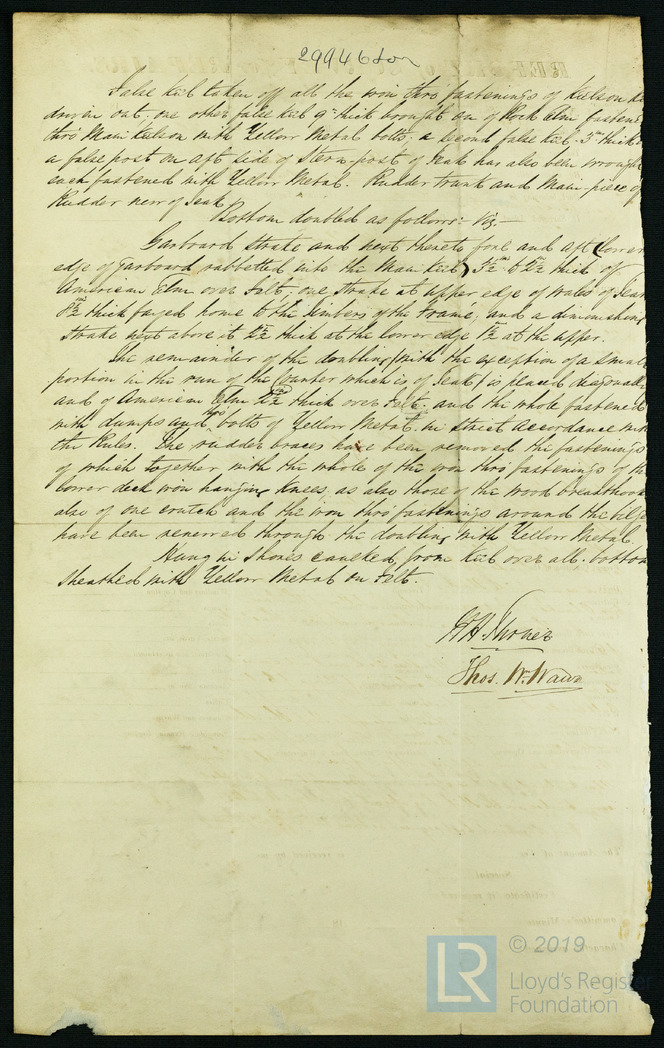 29946 Lon
False keel taken off all the iron thro' fastenings of keelson
driven out; one other false keel 9 in thick brought on of Rock Elm fastened
thro' Main keelson with Yellow Metal bolts; a second false keel 3 in thick
a false post on aft side of stern post of Teak has also been wrought
each fastened with Yellow Metal. Rudder trunk and Main piece of
Rudder new of Teak.
Bottom doubled as follows: Viz.—
Garboard strake and next thereto fore and aft (lower
edge of Garboard rabbetted into the Main keel) 3½ in to 2½ thick of
American Elm over Felt; one strake at upper edge of wales of Teak
3½ in thick fayed home to the timbers of the frame, and a diminishing
strake next above it 2½ thick at the lower edge 1½ at the upper.
The remainder of the doubling (with the exception of a small
portion in the run of the Counter which is of Teak) is placed diagonally
and of American Elm 2½ thick over Felt; and the whole fastened
with dumps and thro' bolts of Yellow Metal in strict accordance with
the Rules. The rudder braces have been removed the fastenings
of which together with the whole of the iron thro' fastenings of the
lower deck iron hanging knees, as also those of the wood breasthook
also of one crutch and the iron thro' fastenings around the bilge
have been renewed through the doubling with Yellow Metal.
Hung in Shores caulked from keel over all, bottom
sheathed with Yellow Metal on Felt.
Thos. W. Wawn
LR © 2019
Lloyd's Register
Foundation